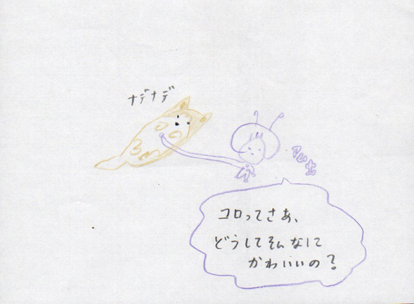 ナデナデ
コロってさあ、
どうしてそんなに
かわいいの？